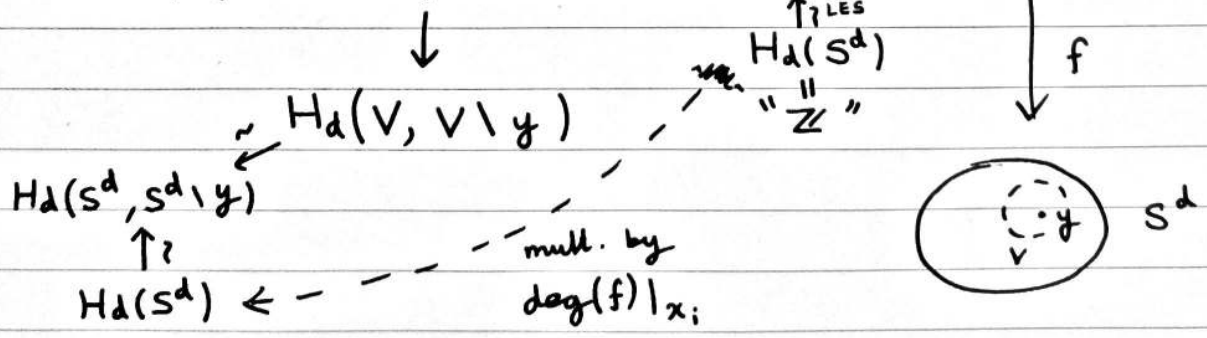 ↑≀ LES
H_d(S^d)
"ℤ"
f
H_d(V, V \ y)
~
H_d(S^d, S^d \ y)
↑≀
H_d(S^d)
mult. by
deg(f)|_{x_i}
y
V
S^d